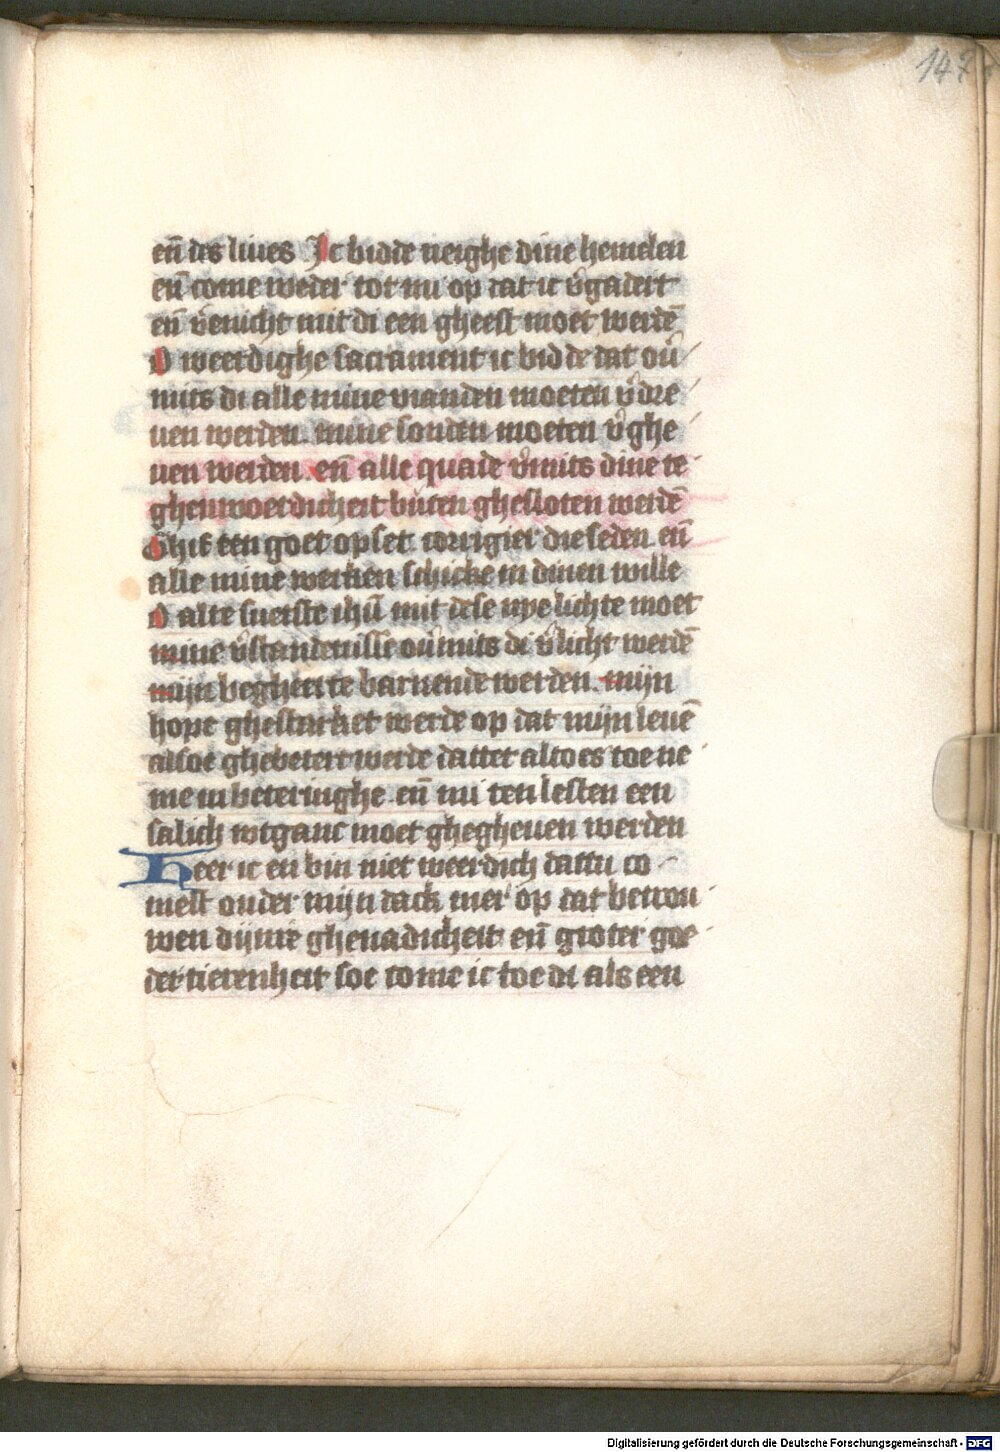 147
en̄ des liues Ic bidde neighe dine hemelen
en̄ come weder tot mi op dat ic v̓gadert
en̄ v̓enicht mit di een gheest moet werdē
O weerdighe sacrament ic bidde dat ou̓
mits di alle mine vianden moeten v̓dre
uen werden. mine sonden moeten v̓ghe
uen werden. en̄ alle quade v̓mits dine te
ghenwoerdicheit buten ghesloten werdē
Ghif een goet opset corrigier die seden. en̄
alle mine werken schicke in dinen wille
O alre suetste ihū mit dese nye lichte moet
mine v̓standenisse ou̓mits di v̓licht werdē
mijn begheerte barnende werden. mijn
hope ghestarket werde op dat mijn leuē
alsoe ghebetert werde dattet altoes toe ne
me in beteringhe. en̄ mi ten lesten een
salich wtganc moet ghegheuen werden
Heer ic en bin niet weerdich dattu co
mest onder mijn dack mer op dat betrou
wen dijnre ghenadicheit en̄ groter goe
dertierenheit soe come ic toe di als een
Digitalisierung gefördert durch die Deutsche Forschungsgemeinschaft - DFG